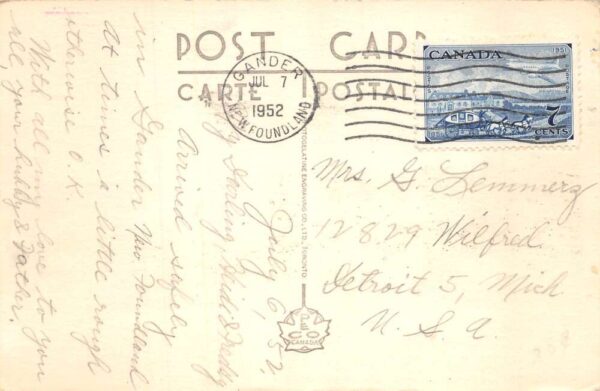 POST CARD
CARTE POSTALE
GANDER
JUL 7
1952
NEWFOUNDLAND
CANADA
1951
7
CENTS
July 6, 52.
My Darling Heidi & Teddy
Arrived safely
in Gander New Foundland
At times a little rough
otherwise O.K.
With all my love to you
all, your hubby & Father.
PHOTOGELATINE ENGRAVING CO., LTD., TORONTO
CANADA
Mrs. G. Lemmerz
12829 Wilfred
Detroit 5, Mich
U.S.A.